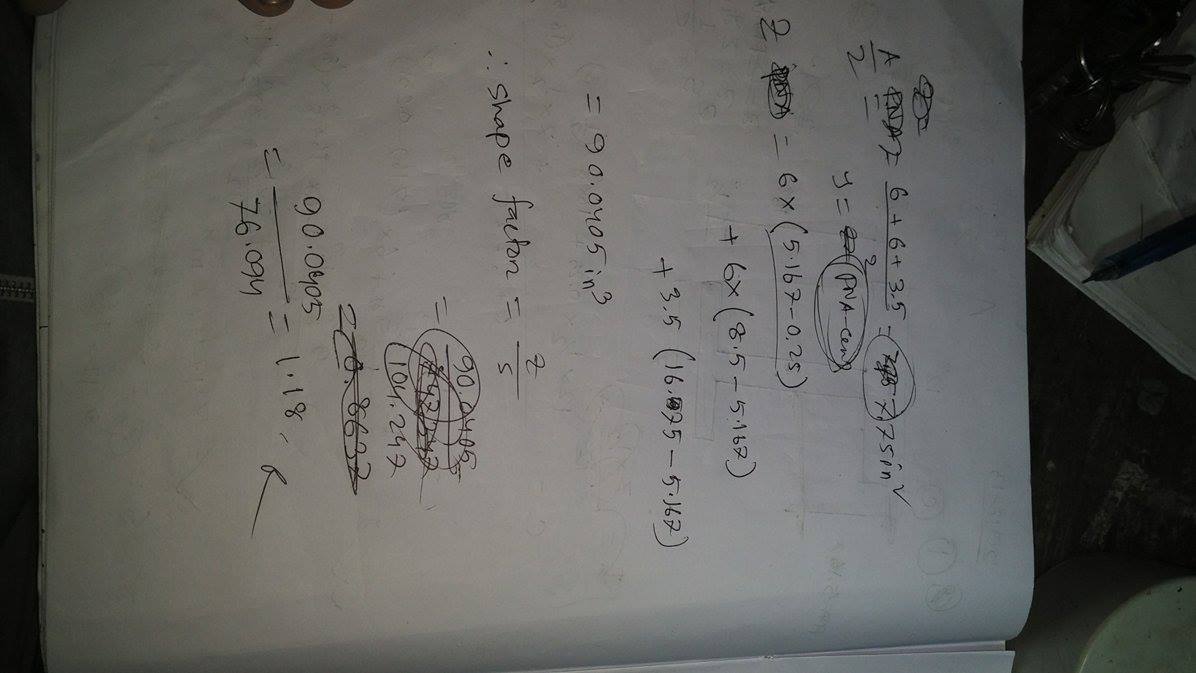 A/2 = (6 + 6 + 3.5)/2 = 7.75 in²
y = (PNA - cen)
Z = 6 × (5.167 - 0.25)
+ 6 × (8.5 - 5.167)
+ 3.5 (16.75 - 5.167)
= 90.0405 in³
∴ shape factor = Z/S
= 90.0405/104.247
= 90.0405/76.094 = 1.18